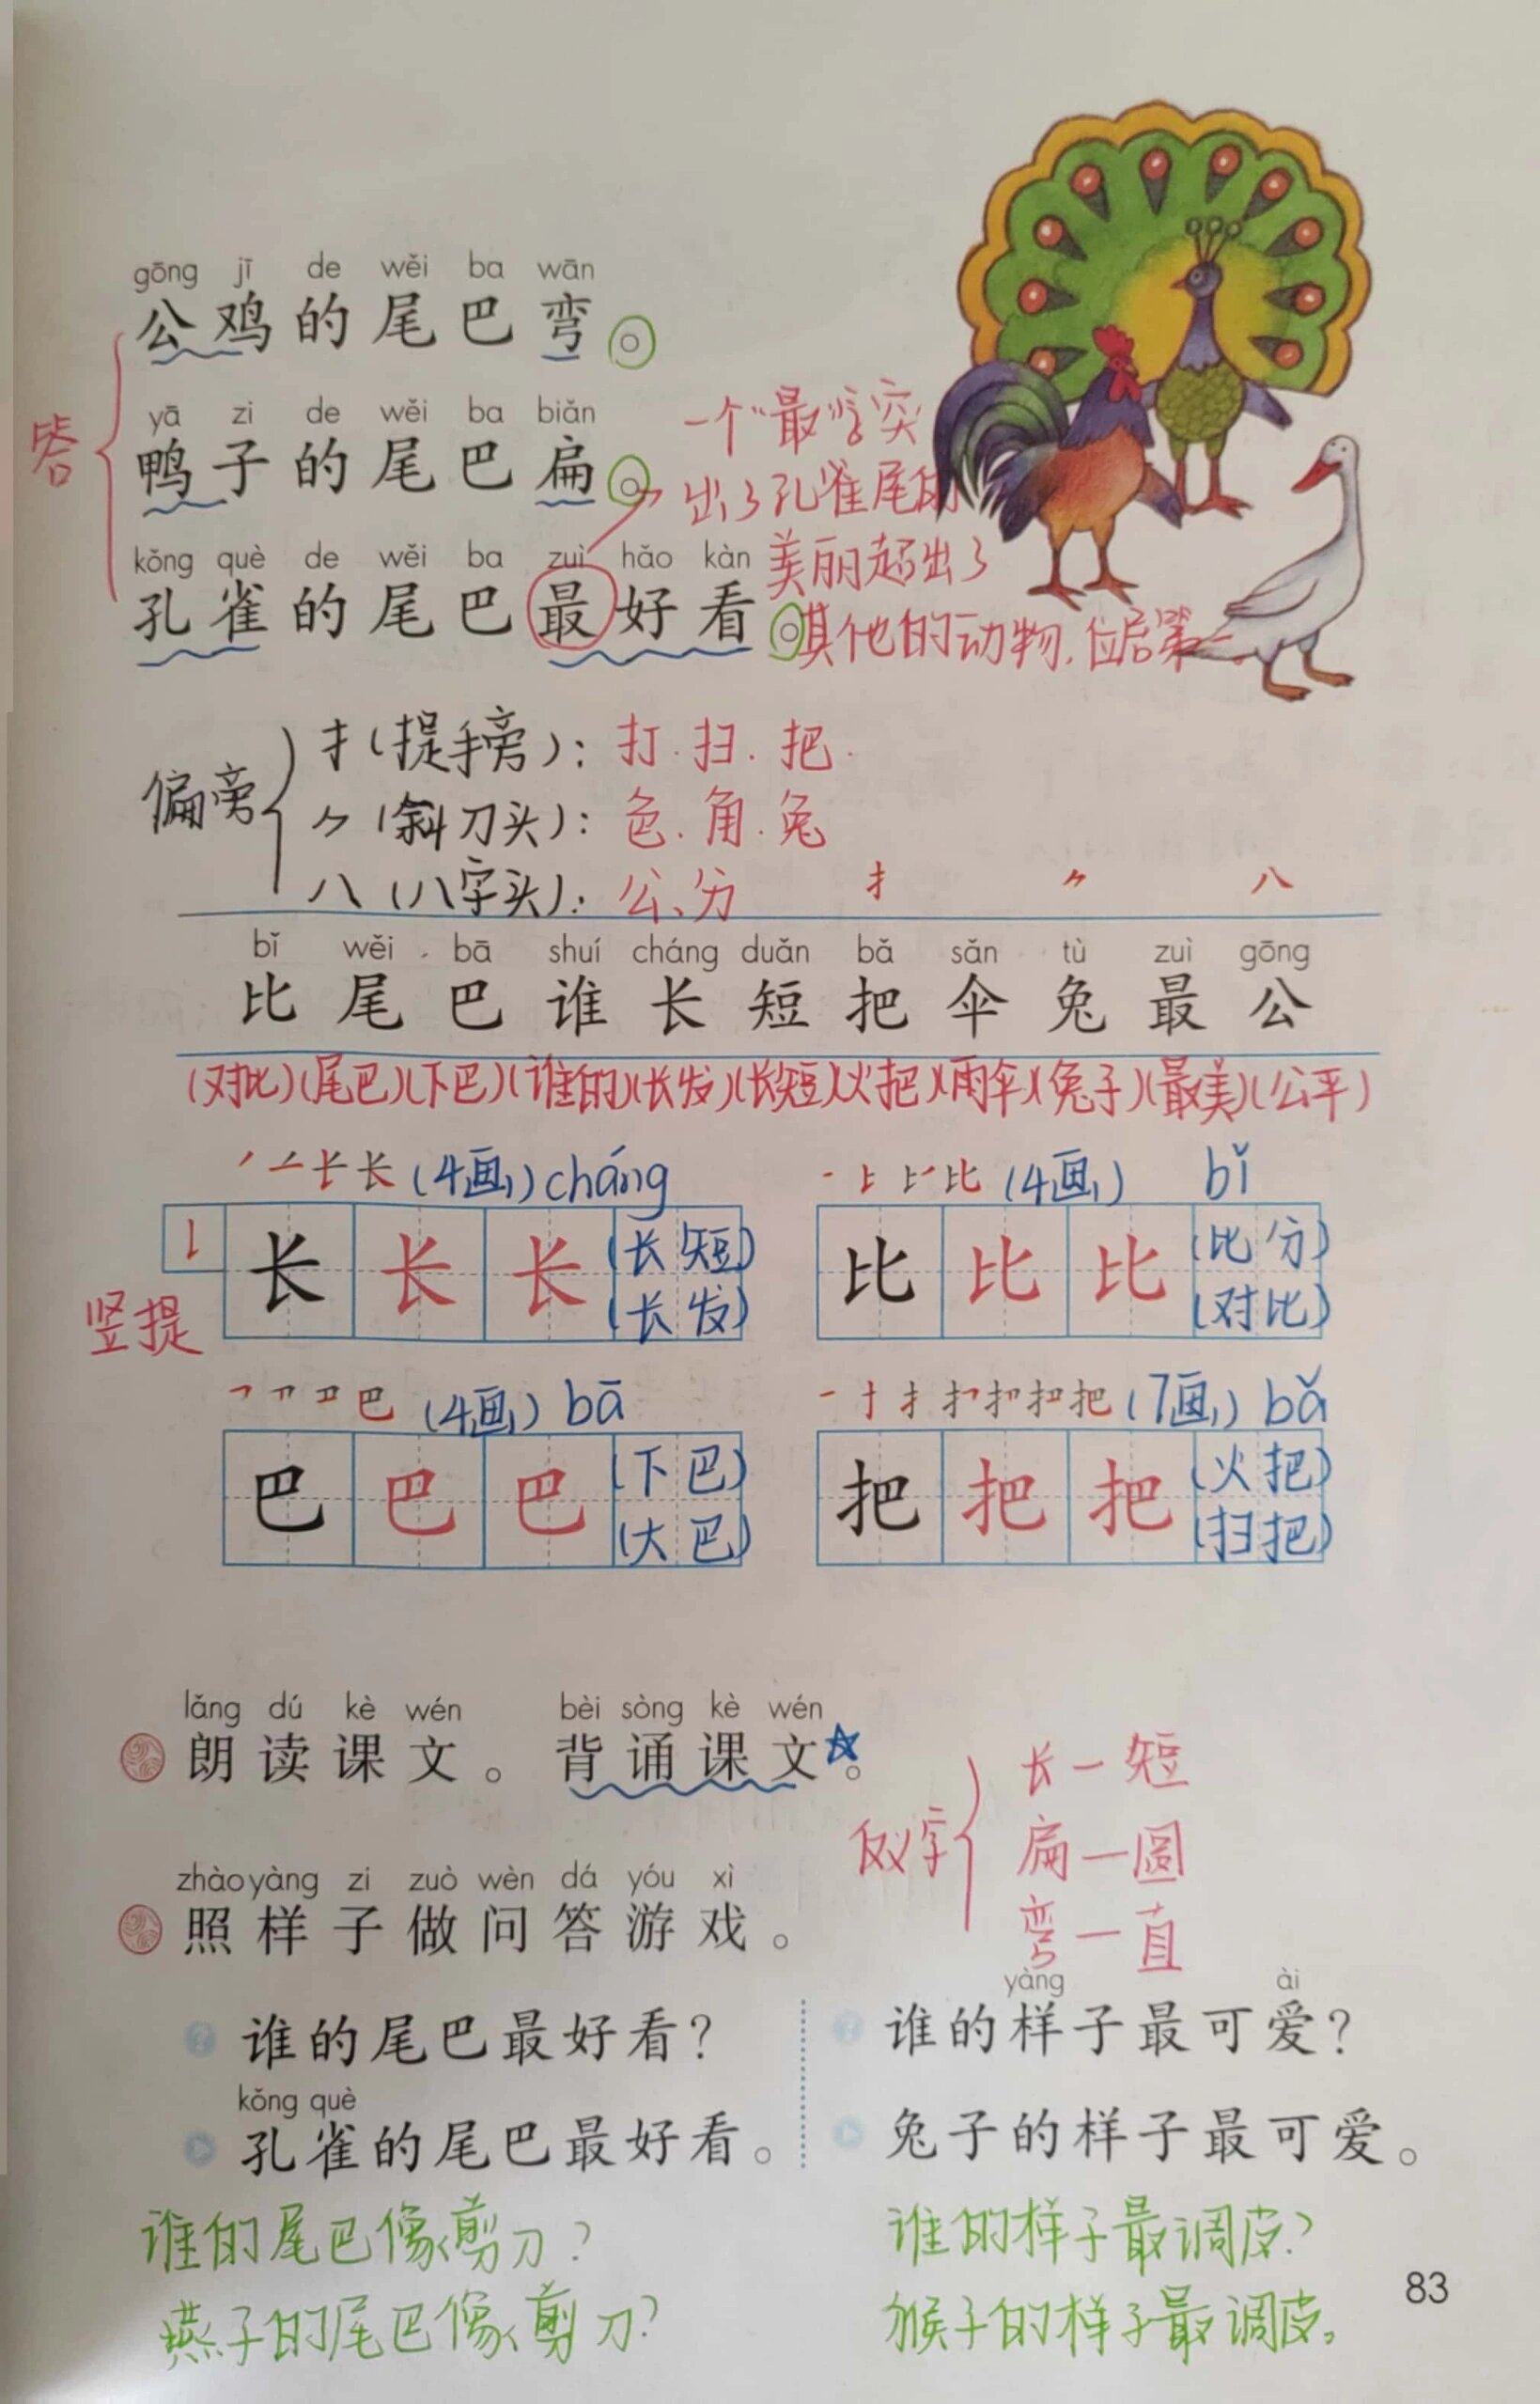 gōng jī de wěi ba wān
公鸡的尾巴弯。
yā zi de wěi ba biǎn
鸭子的尾巴扁。
kǒng què de wěi ba zuì hǎo kàn
孔雀的尾巴最好看。
答
一个“最”字突
出了孔雀尾的
美丽超出了
其他的动物,位居第一。
偏旁
扌(提手旁):打.扫.把.
⺈(斜刀头):色.角.兔
八(八字头):公、分
扌 ⺈ 八
bǐ wěi bā shuí cháng duǎn bǎ sǎn tù zuì gōng
比 尾 巴 谁 长 短 把 伞 兔 最 公
(对比)(尾巴)(下巴)(谁的)(长发)(长短)(火把)(雨伞)(兔子)(最美)(公平)
长(4画)cháng
竖提
长 长 长 (长短)
(长发)
比(4画) bǐ
比 比 比 (比分)
(对比)
巴(4画)bā
巴 巴 巴 (下巴)
(大巴)
一 十 扌 把(7画)bǎ
把 把 把 (火把)
(扫把)
lǎng dú kè wén bèi sòng kè wén
朗读课文。背诵课文☆。
反义字
长—短
扁—圆
弯—直
zhào yàng zi zuò wèn dá yóu xì
照样子做问答游戏。
谁的尾巴最好看?
kǒng què
孔雀的尾巴最好看。
谁的尾巴像剪刀?
燕子的尾巴像剪刀?
yàng ài
谁的样子最可爱?
兔子的样子最可爱。
谁的样子最调皮?
猴子的样子最调皮。
83